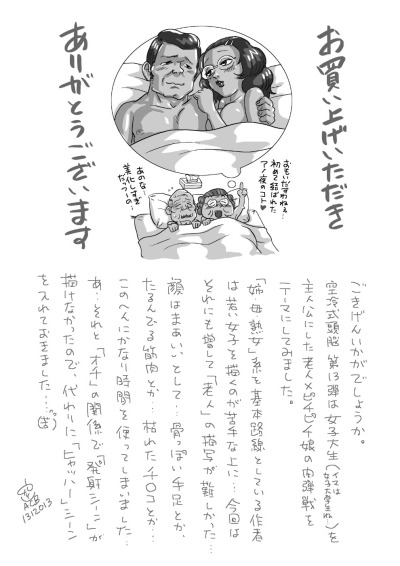 お買い上げいただき
ありがとうございます
おもいだすわねぇ…
初めて結ばれた
アノ夜のコト♥
あのな…
美化しすぎ
だっつーの…
ごきげんいかがでしょうか。
空冷式頭脳 第13弾は女子大生(イマは女子大学生ね)を
主人公にした老人×ピチピチ娘の肉弾戦を
テーマにしてみました。
「姉・母・熟女」系を基本路線としている作者
は若い女子を描くのが苦手な上に…今回は
それにも増して「老人」の描写が難しかった…
顔はまあいいとして…骨っぽい手足とか、
たるんでる筋肉とか…枯れたチ○コとか…
このへんにかなり時間を使ってしまいました…
あ…それと「オチ」の関係で「発射シーン」が
描けなかったので、代わりに「ヒャッハー」シーン
を入れておきました…(笑)
13122013